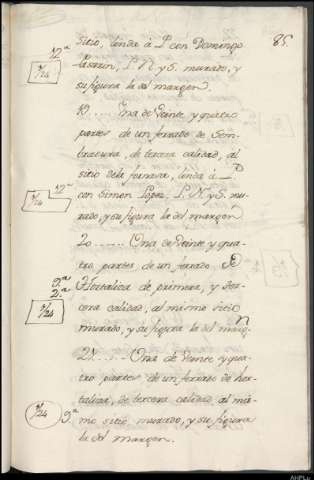 sitio, linda à P. con Domingo 85.
L. N. y S. murado, y
su figura la del margen.
19..... Una de Veinte y quatro
partes de un ferrado de Sem-
bradura, de tercera calidad, al
sitio dela linda à P.
con Simon Lopez, L. N. y S. mu-
rado, y su figura la del margen
20...... Una de Veinte y qua-
tro partes de un ferrado de
Hortaliza de primera, y ter-
cera calidad, al mismo sitio
murado, y su figura la del marg.n
21...... Una de Veinte y qua-
tro partes de un ferrado de hor-
taliza, de tercera calidad, al mis-
mo sitio murado, y su figura
la del margen.
AHPLu